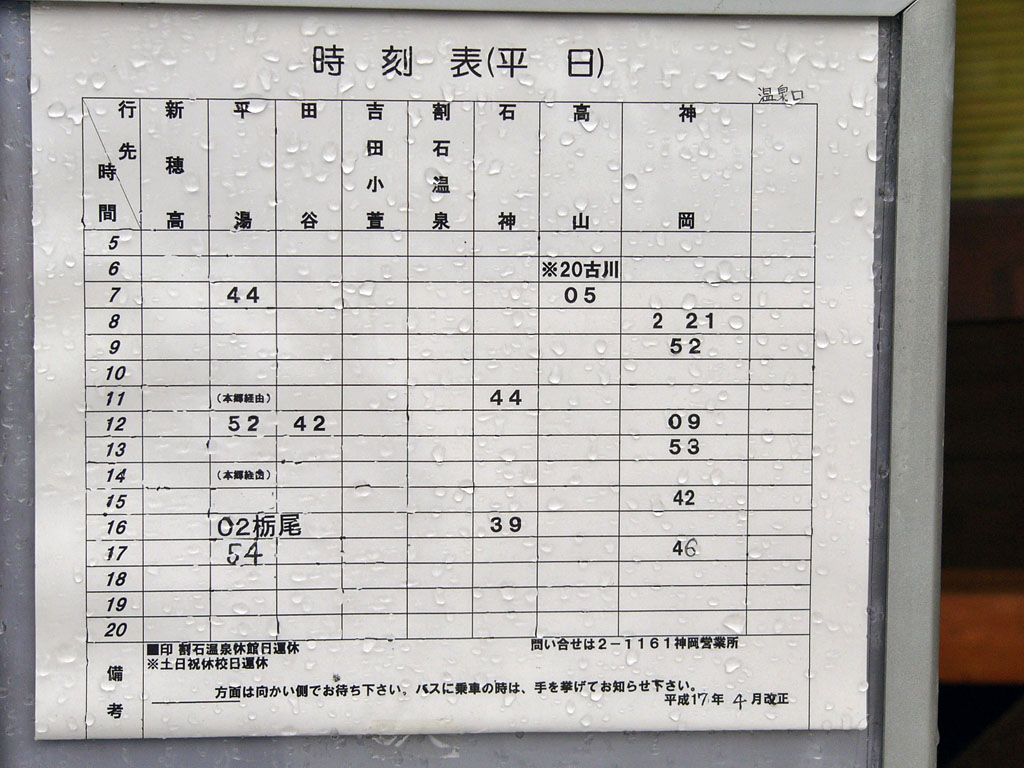 時刻表(平日)
温泉口
行先 時間 新穂高 平湯 田谷 吉田小萱 割石温泉 石神 高山 神岡
5
6 ※20古川
7 44 05
8 2 21
9 52
10
11 (本郷経由) 44
12 52 42 09
13 53
14 (本郷経由)
15 42
16 02栃尾 39
17 54 46
18
19
20
備考
■印 割石温泉休館日運休 問い合せは2-1161神岡営業所
※土日祝休校日運休
方面は向かい側でお待ち下さい。バスに乗車の時は、手を挙げてお知らせ下さい。
平成17年 4月改正